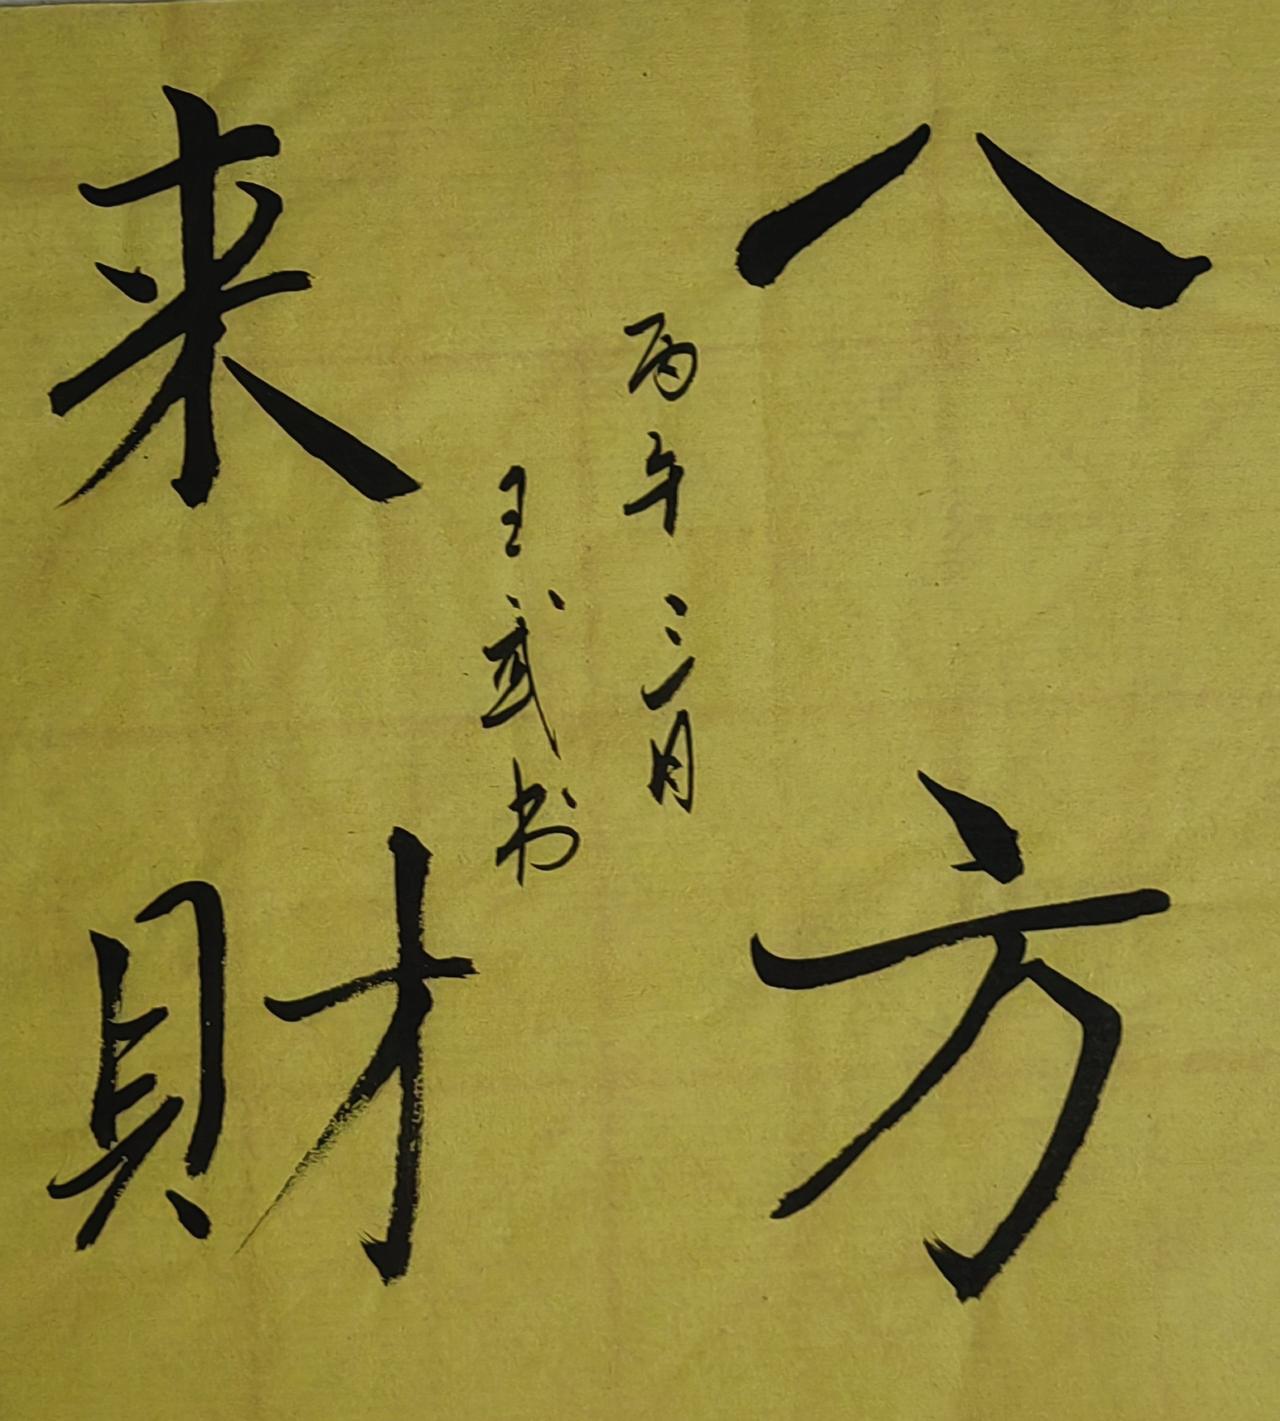 八方
来財
丙午三月
王武书